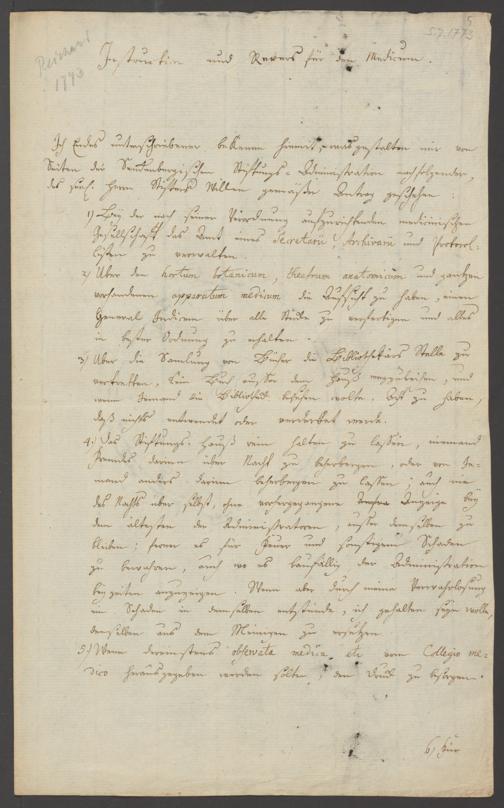 5
5.7.1773
Reichard
1773
Instruction und Revers für den Medicum.
Ich Endes unterschriebener bekenne hiermit, was gestalten mir von
Seiten der Senckenbergischen Stiftungs-Administration nachfolgender,
des seel. Herrn Stifters Willen gemäßer Antrag geschehen:
1) Bey der nach seiner Verordnung aufzurichtenden medicinischen
Gesellschaft das Amt eines Secretarii, Archivarii und Protocol-
listen zu verwalten.
2) Über den hortum botanicum, theatrum anatomicum und gantzen
vorhandenen apparatum medicum die Aufsicht zu haben, einen
General Indicem über alle Stücke zu verfertigen und alles
in bester Ordnung zu erhalten.
3) Über die Samlung von Bücher die Bibliothekars Stelle zu
vertretten, kein Buch ausser dem Hauß wegzuleihen, und
wenn Jemand die Bibliothek besehen wolte, acht zu haben,
daß nichts entwendet oder verderbet werde.
4.) Das Stiftungs-Hauß rein halten zu lassen, niemand
Fremdes darinn über Nacht zu beherbergen, oder von Je-
mand anders darinn beherbergen zu lassen; auch nie
des Nachts über selbst, ohne vorhergegangene Anzeige bey
dem ältesten der Administratoren, ausser demselben zu
bleiben; ferner es für Feuer und sonstigem Schaden
zu bewahren, auch wo es baufällig der Administration
bey zeiten anzuzeigen. Wenn aber durch meine Verwahrlosung
ein Schaden in demselben entstünde, ich gehalten seyn wolle,
denselben aus dem Meinigen zu ersetzen.
5) Wenn dereinstens observata medica etc vom Collegio me-
dico herausgegeben werden solten, den Druck zu besorgen.
6) Für